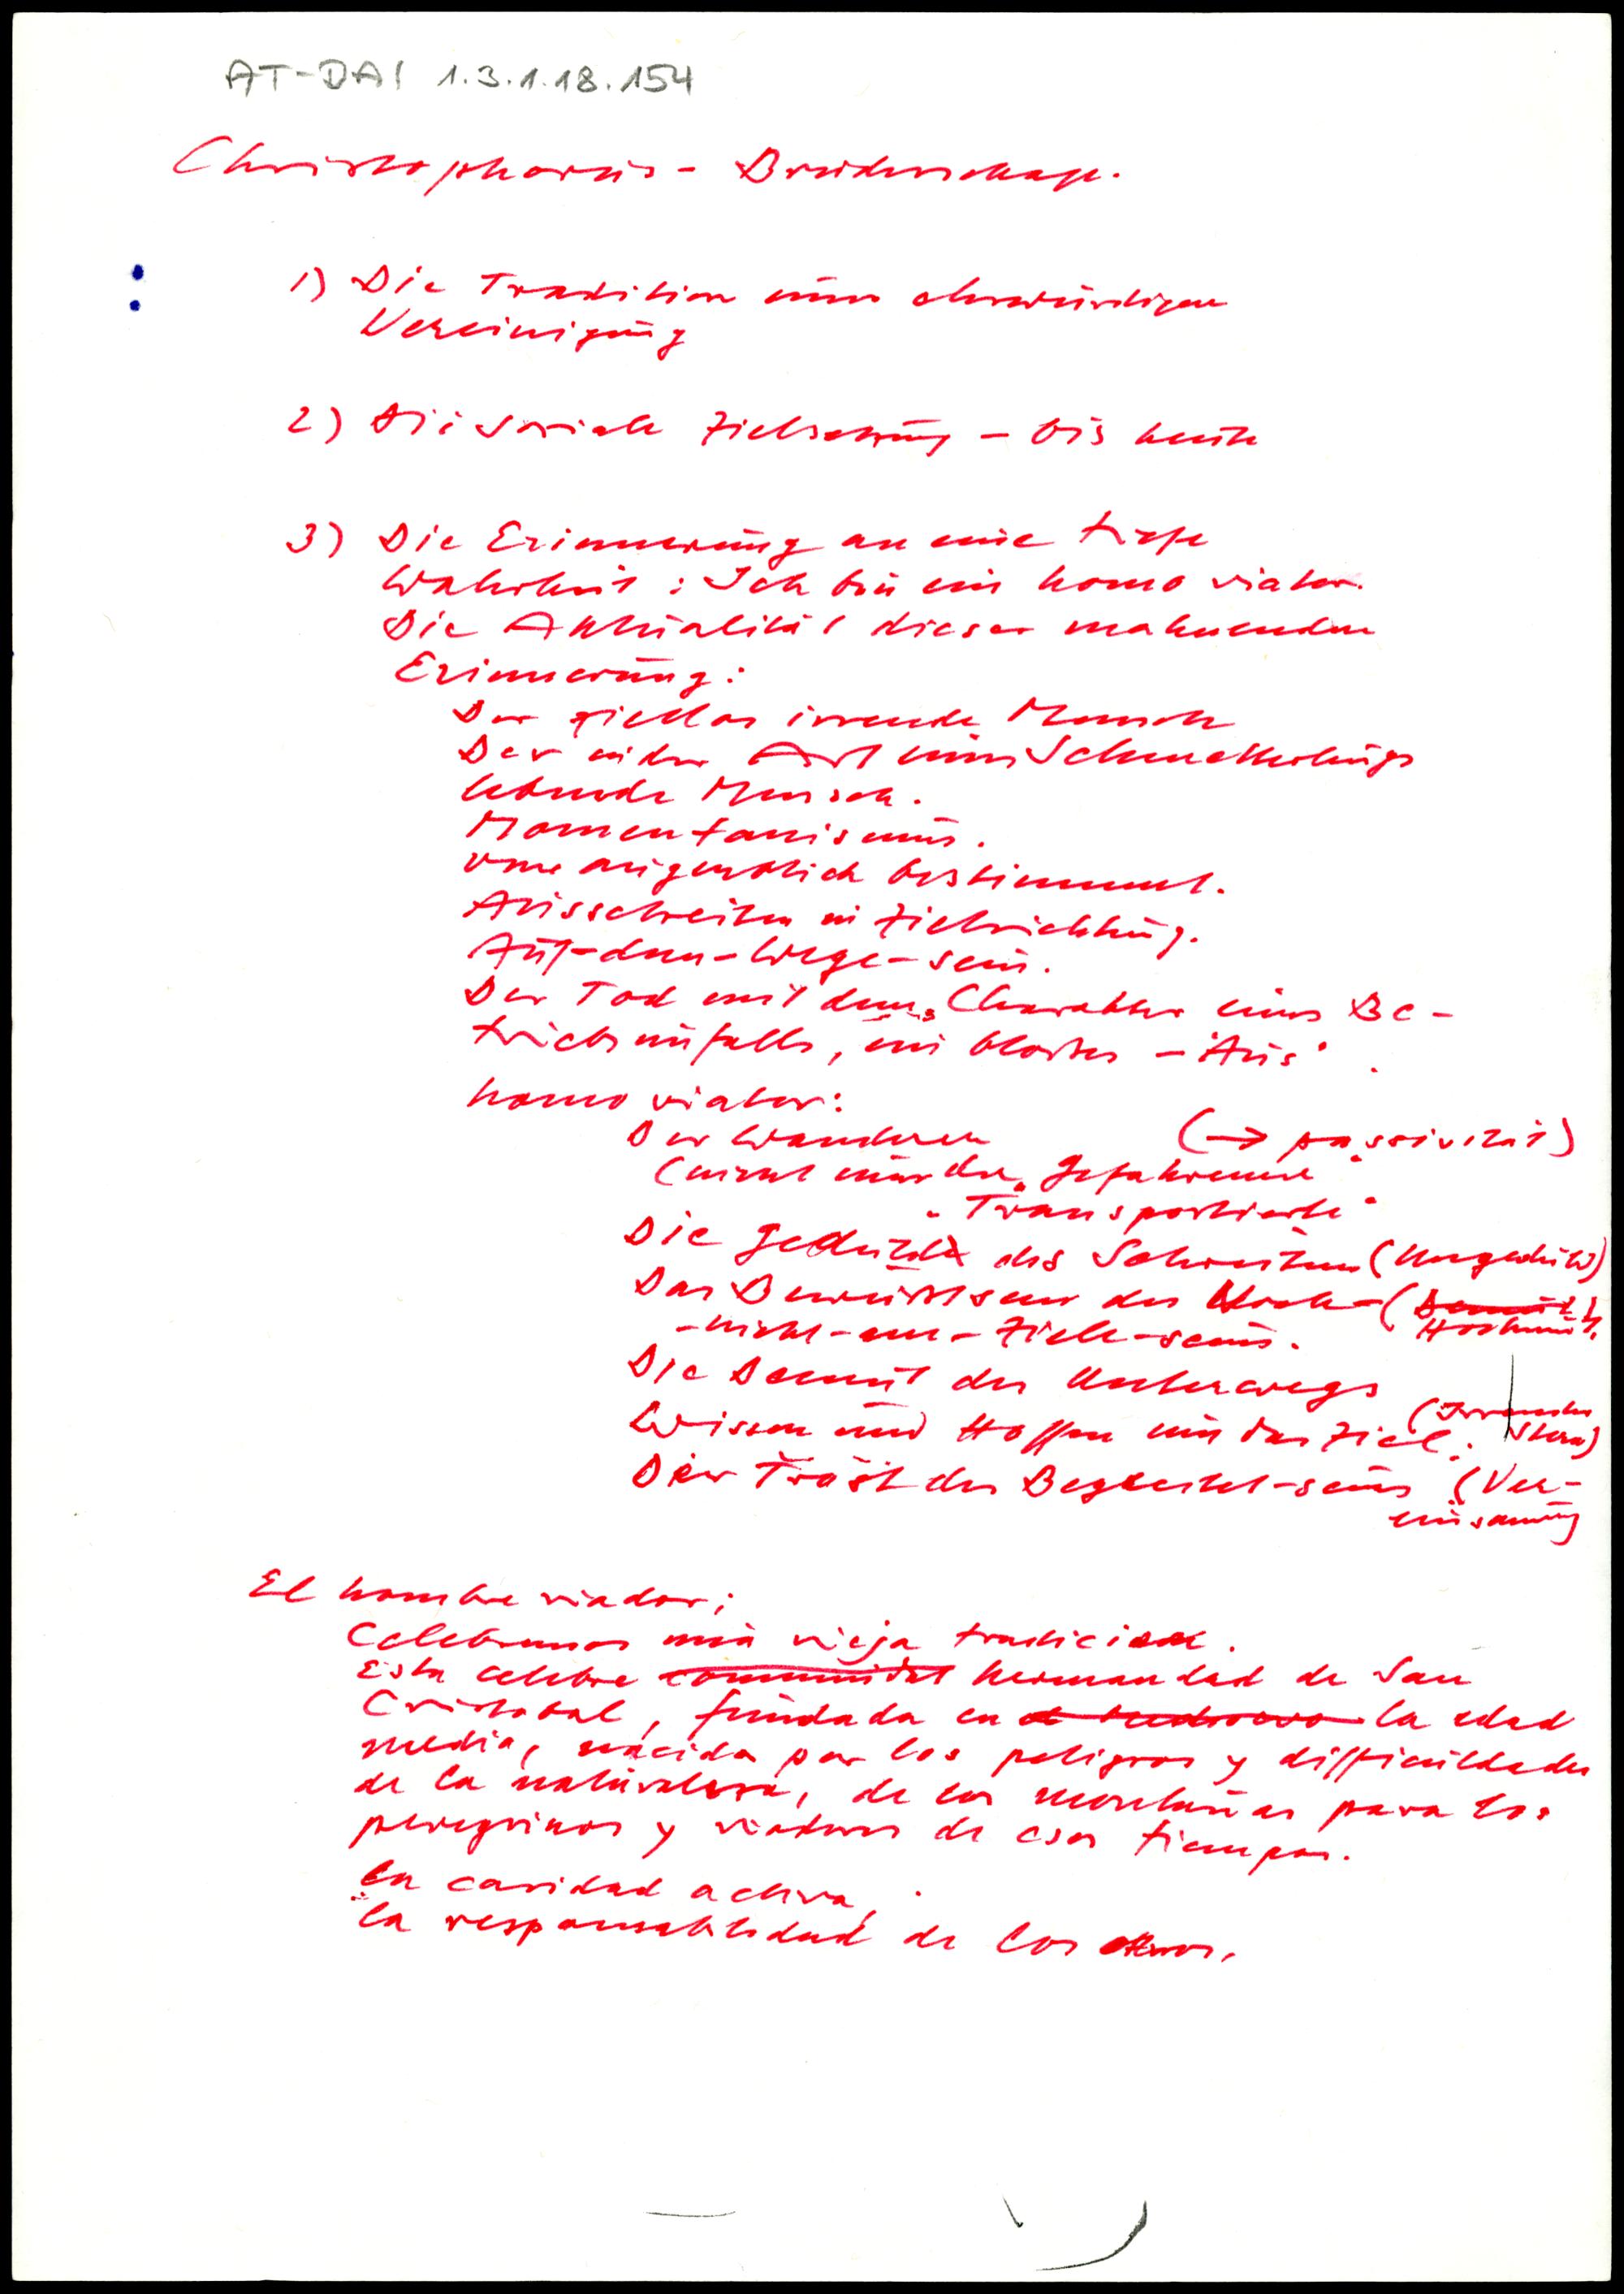 AT-DAI 1.3.1.18.154
Christophorus - Bruderschaft.
1) Die Tradition einer ehrwürdigen
Vereinigung
2) Die soziale Zielsetzung - bis heute
3) Die Erinnerung an eine tiefe
Wahrheit: Ich bin ein homo viator.
Die Aktualität dieser mahnenden
Erinnerung:
Der ziellos irrende Mensch
Der in der Art eines Schmetterlings
lebende Mensch.
Momentanismus.
vom augenblick bestimmt.
Ausschreiten in Zielrichtung.
Auf-dem-Wege-sein.
Der Tod mit dem Charakter eines Be-
triebsunfalls, ein bloßes - "Aus".
homo viator:
Der Wanderer (→ passivität)
(nicht nur der "Gefahrene"
"Transportierte"
Die Geduld des Schreitens (Ungeduld)
Das Bewußtsein des Noch- (Demut
Hochmut),
-nicht-am-Ziele-seins.
Die Demut des Unterwegs
Wissen und Hoffen um das Ziel. (Irrender
Stern)
Der Trost des Begleitet-seins (Ver-
einsamung
El hombre viador;
Celebramos una vieja tradicion.
Esta celebre communidad hermandad de San
Cristobal, fundada en la edad
media, nacida por los peligros y difficuldades
de la naturaleza, de las montañas para los
peregrinos y viadores de esos tiempos.
La caridad activa,
la responsabilidad de los otros.